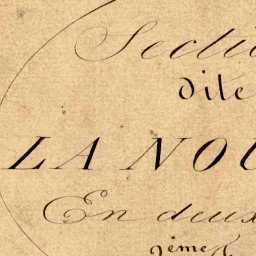 Sectio
dite
LA NOU
En deux
2ème F